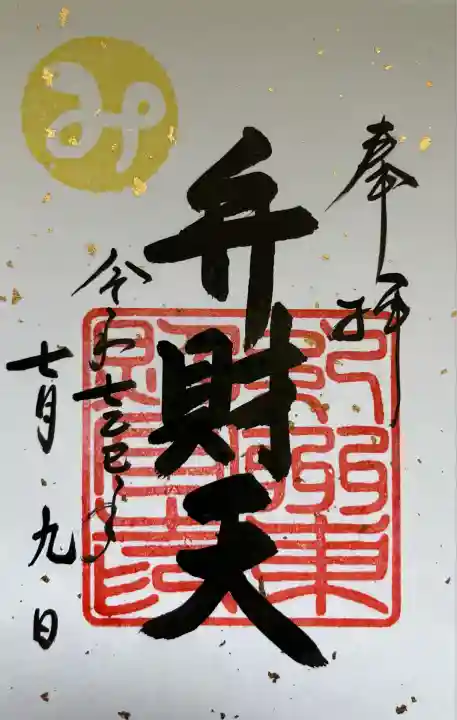 奉拝
弁財天
み
令和七乙巳年
七月九日